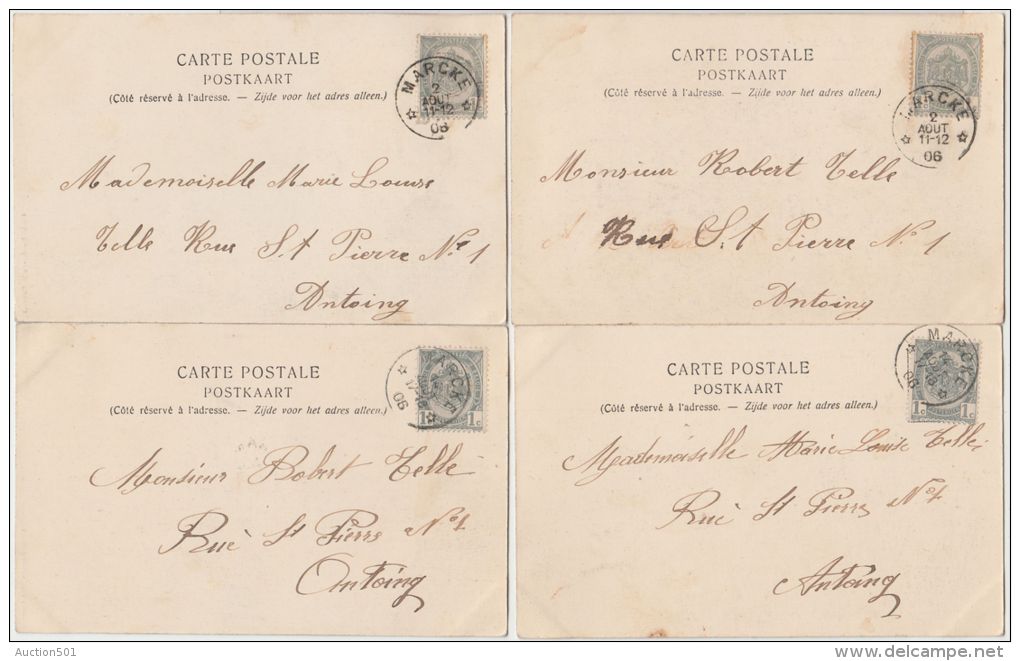 CARTE POSTALE
POSTKAART
(Côté réservé à l'adresse. — Zijde voor het adres alleen.)
MARCKE
2
AOUT
11-12
06
Mademoiselle Marie Louise
Telle Rue St Pierre No 1
Antoing
CARTE POSTALE
POSTKAART
(Côté réservé à l'adresse. — Zijde voor het adres alleen.)
MARCKE
2
AOUT
11-12
06
Monsieur Robert Telle
Rue St Pierre No 1
Antoing
CARTE POSTALE
POSTKAART
(Côté réservé à l'adresse. — Zijde voor het adres alleen.)
MARCKE
06
1c 1c
Monsieur Robert Telle
Rue St Pierre No 1
Antoing
CARTE POSTALE
POSTKAART
(Côté réservé à l'adresse. — Zijde voor het adres alleen.)
MARCKE
06
1c 1c
Mademoiselle Marie Louise Telle
Rue St Pierre No 1
Antoing
Auction501
delcampe.net